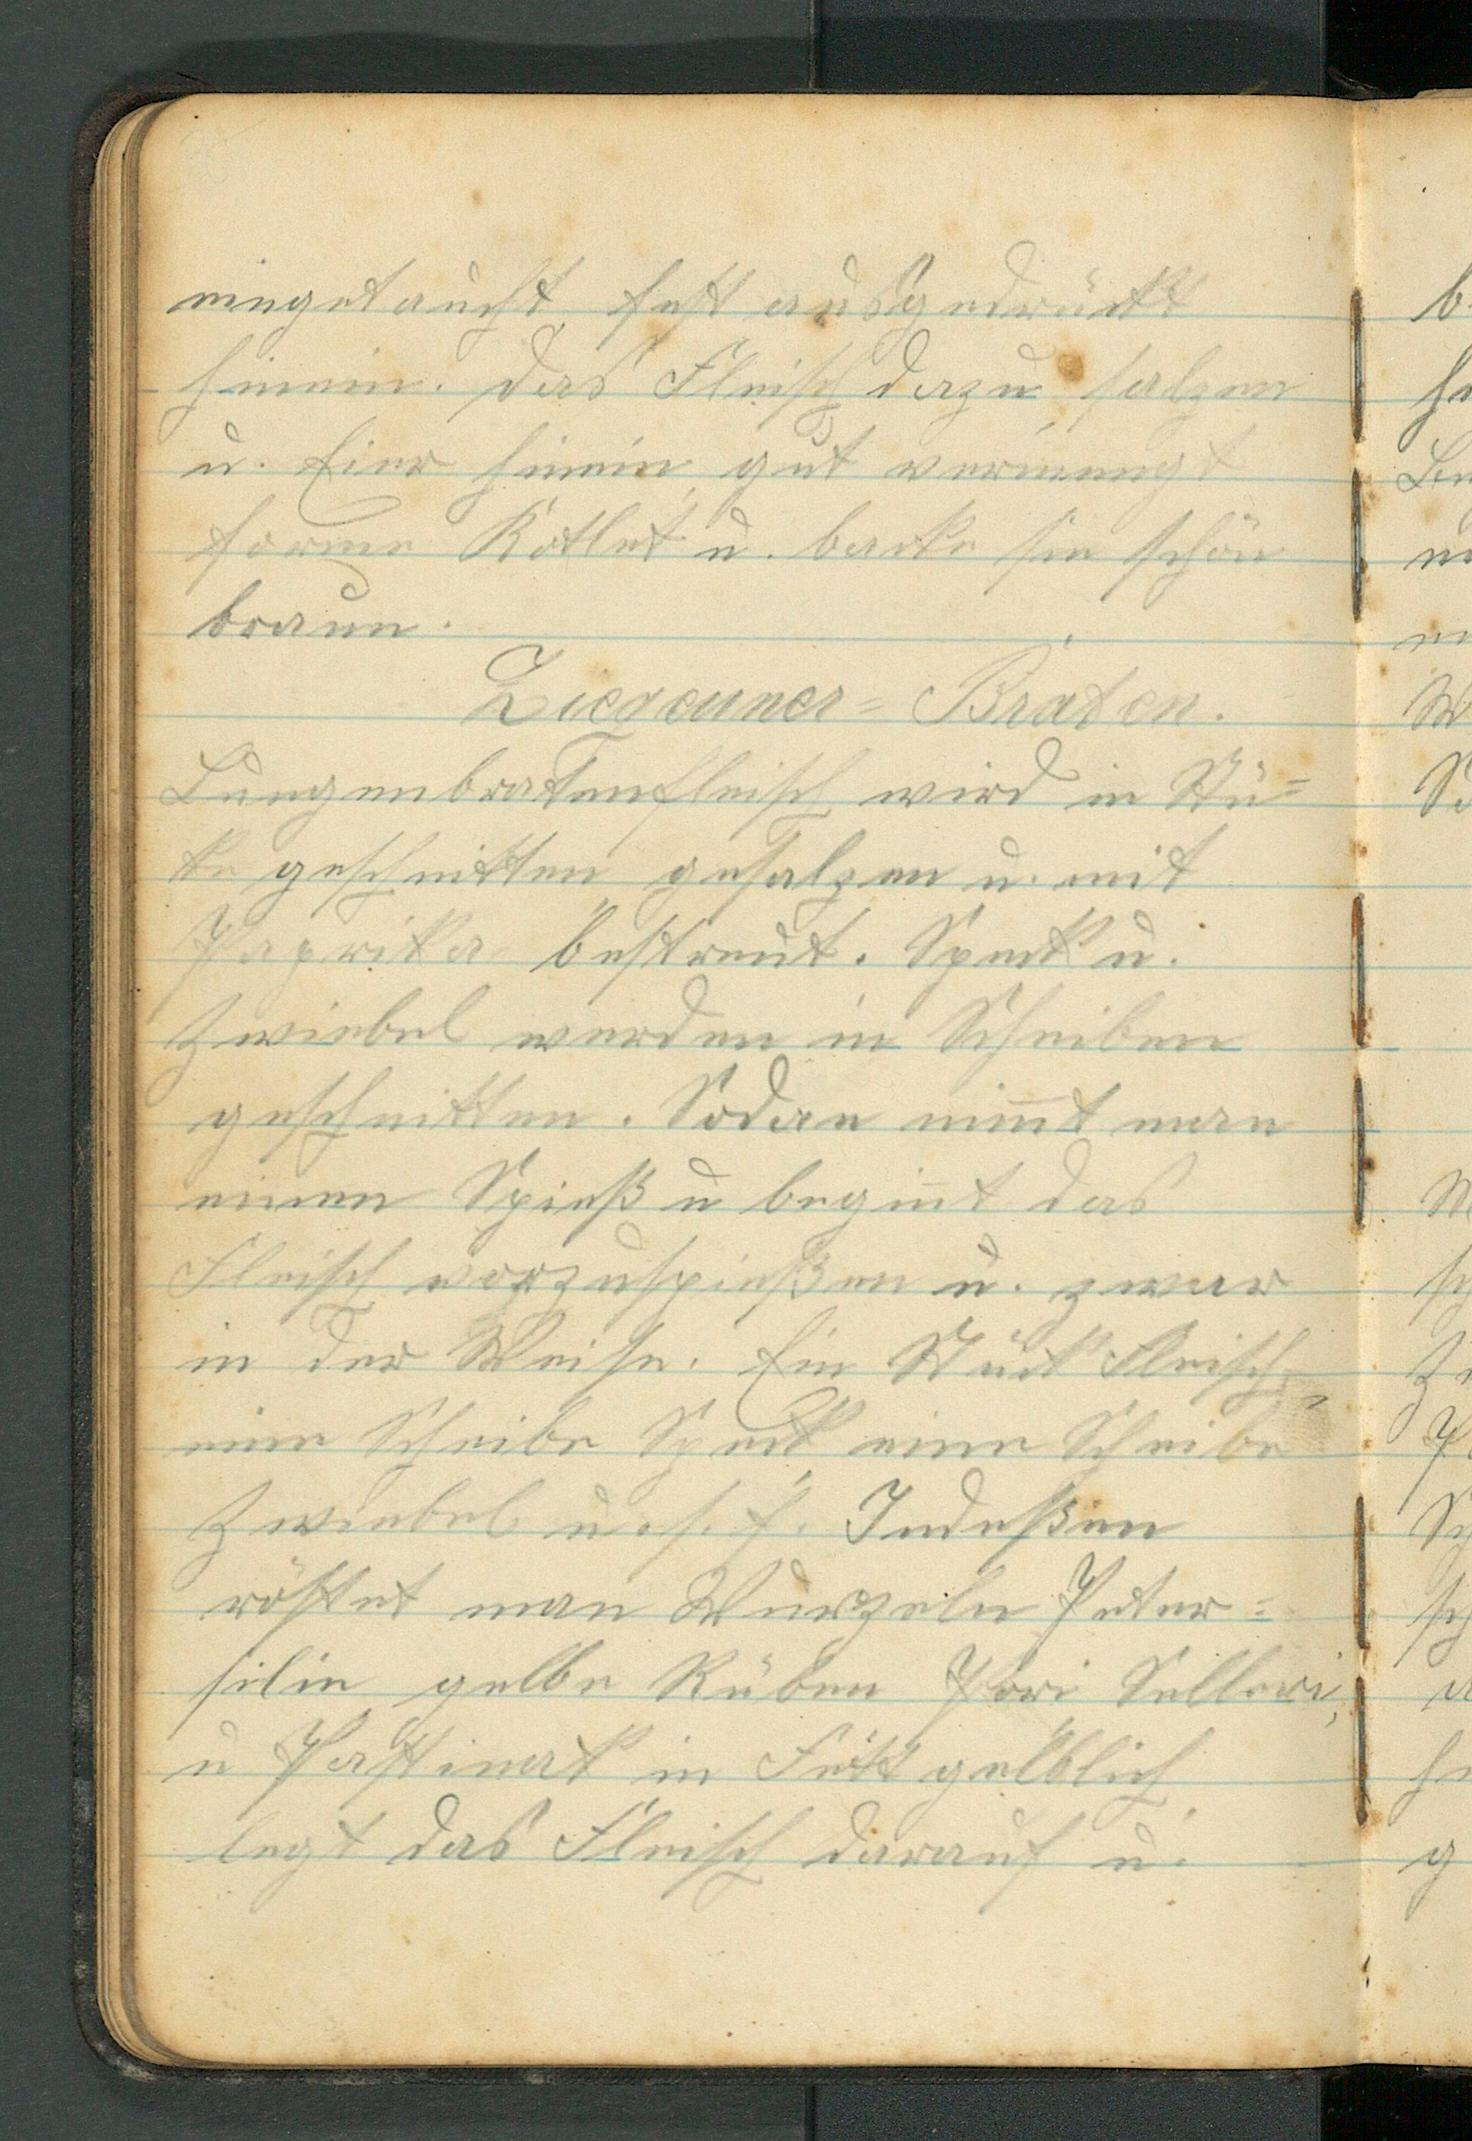 eingetaucht fest ausgedrückt
hinein. Das Fleisch dazu salzen
u. Eier hinein gut vermengt
forme Kotlet u. backe sie schön
braun.
Ziegeuner= Braten.
Lungenbratenfleisch wird in Stü=
cke geschnitten gesalzen u. mit
Paprika bestreut. Speck u.
Zwiebel werden in Scheiben
geschnitten. Sodan nim̅t man
einen Spieß u begin̅t das
Fleisch vorzuspießen u. zwar
in der Weise. Ein Stück Fleisch,
eine Scheibe Speck eine Scheibe
Zwiebel u. s. f. Indeßen
röstet man Wurzeln Peter=
silie gelbe Rüben Pori Selleri,
u Pastinak in Fett gelblich
legt das Fleisch darauf u.